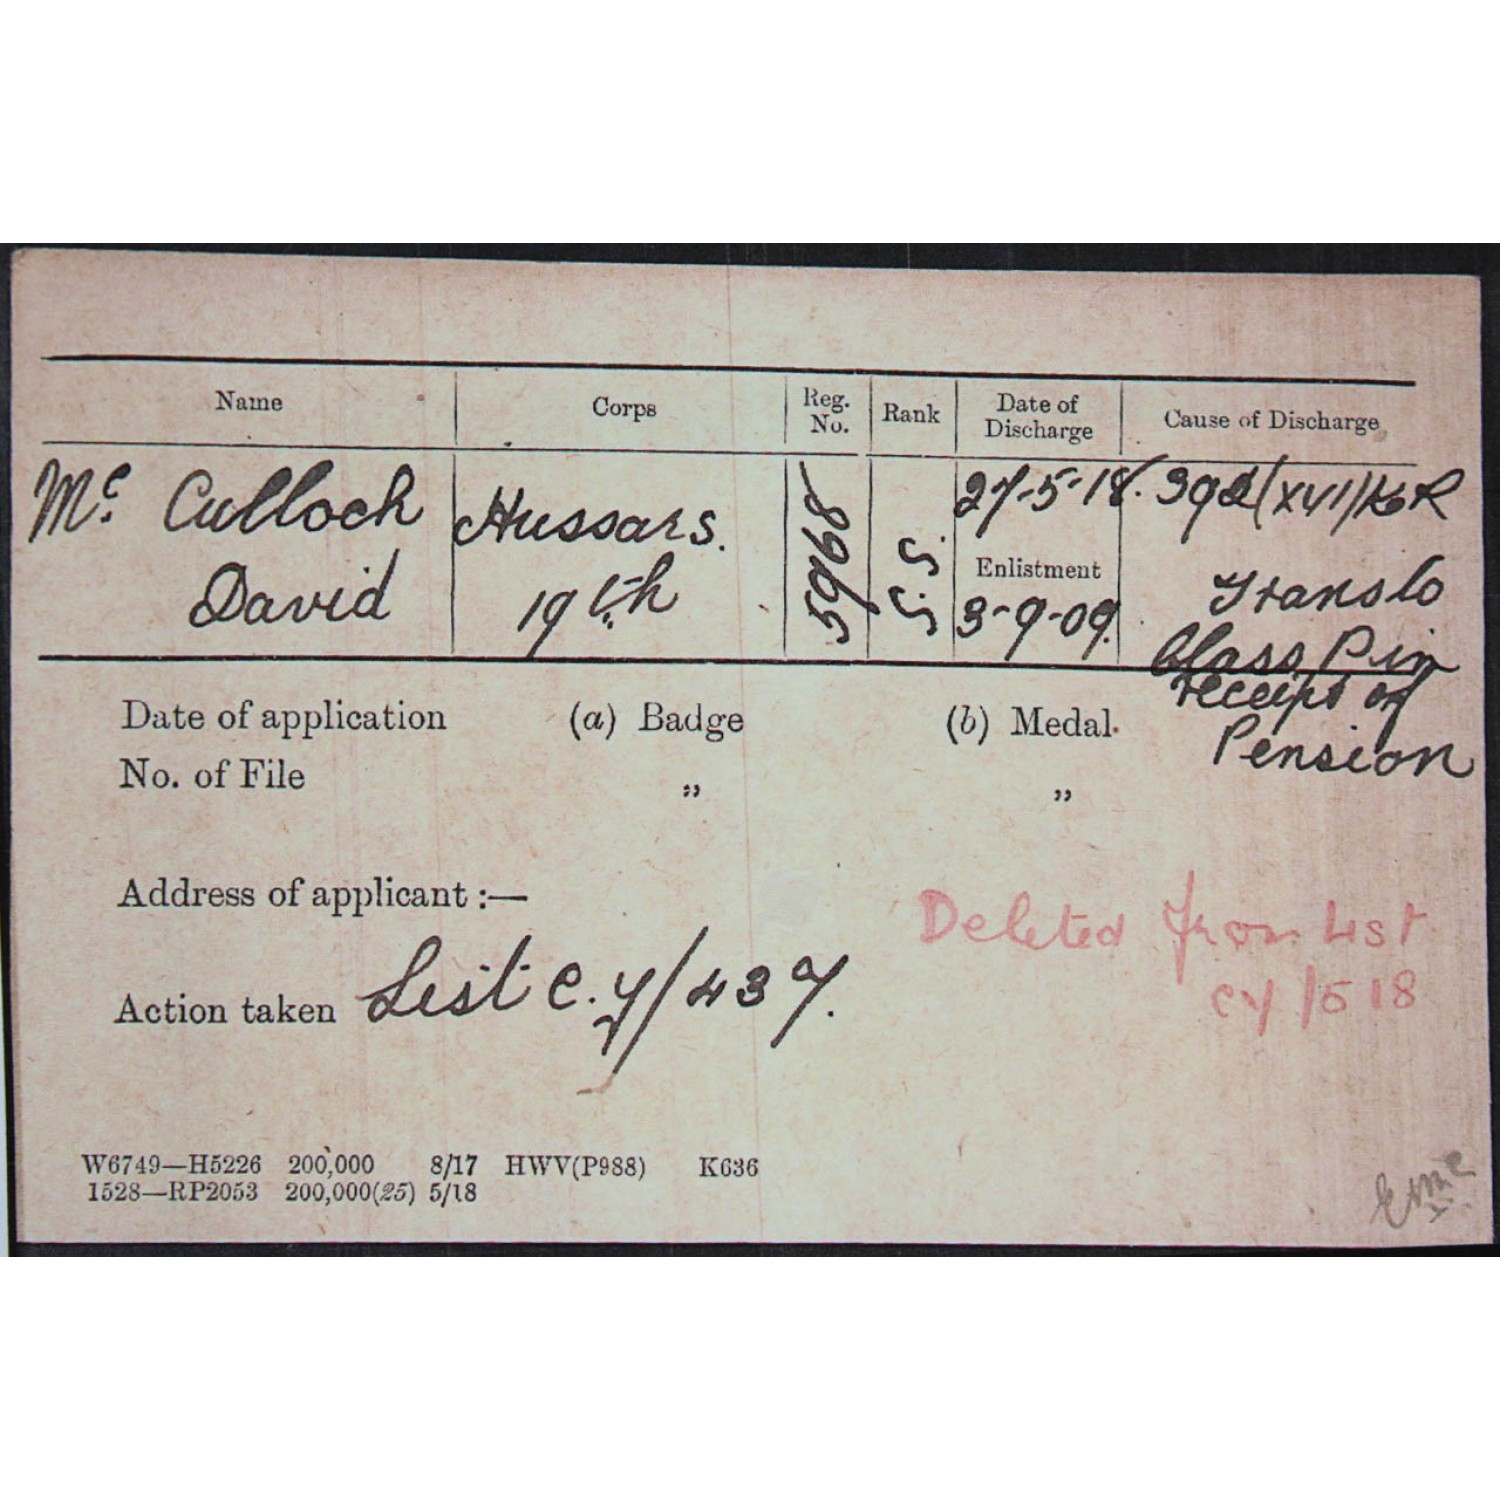 Name Corps Reg. No. Rank Date of Discharge Cause of Discharge
Mc. Culloch Hussars. 5968 S.S. 27-5-18. 392(XVI)KR
David 19th Enlistment Trans to
3-9-09. Class P in
receipt of
Pension
Date of application (a) Badge (b) Medal.
No. of File " "
Address of applicant :—
Deleted from List
Action taken List C.y/437. cy/518
W6749—H5226 200,000 8/17 HWV(P988) K636
1528—RP2053 200,000(25) 5/18